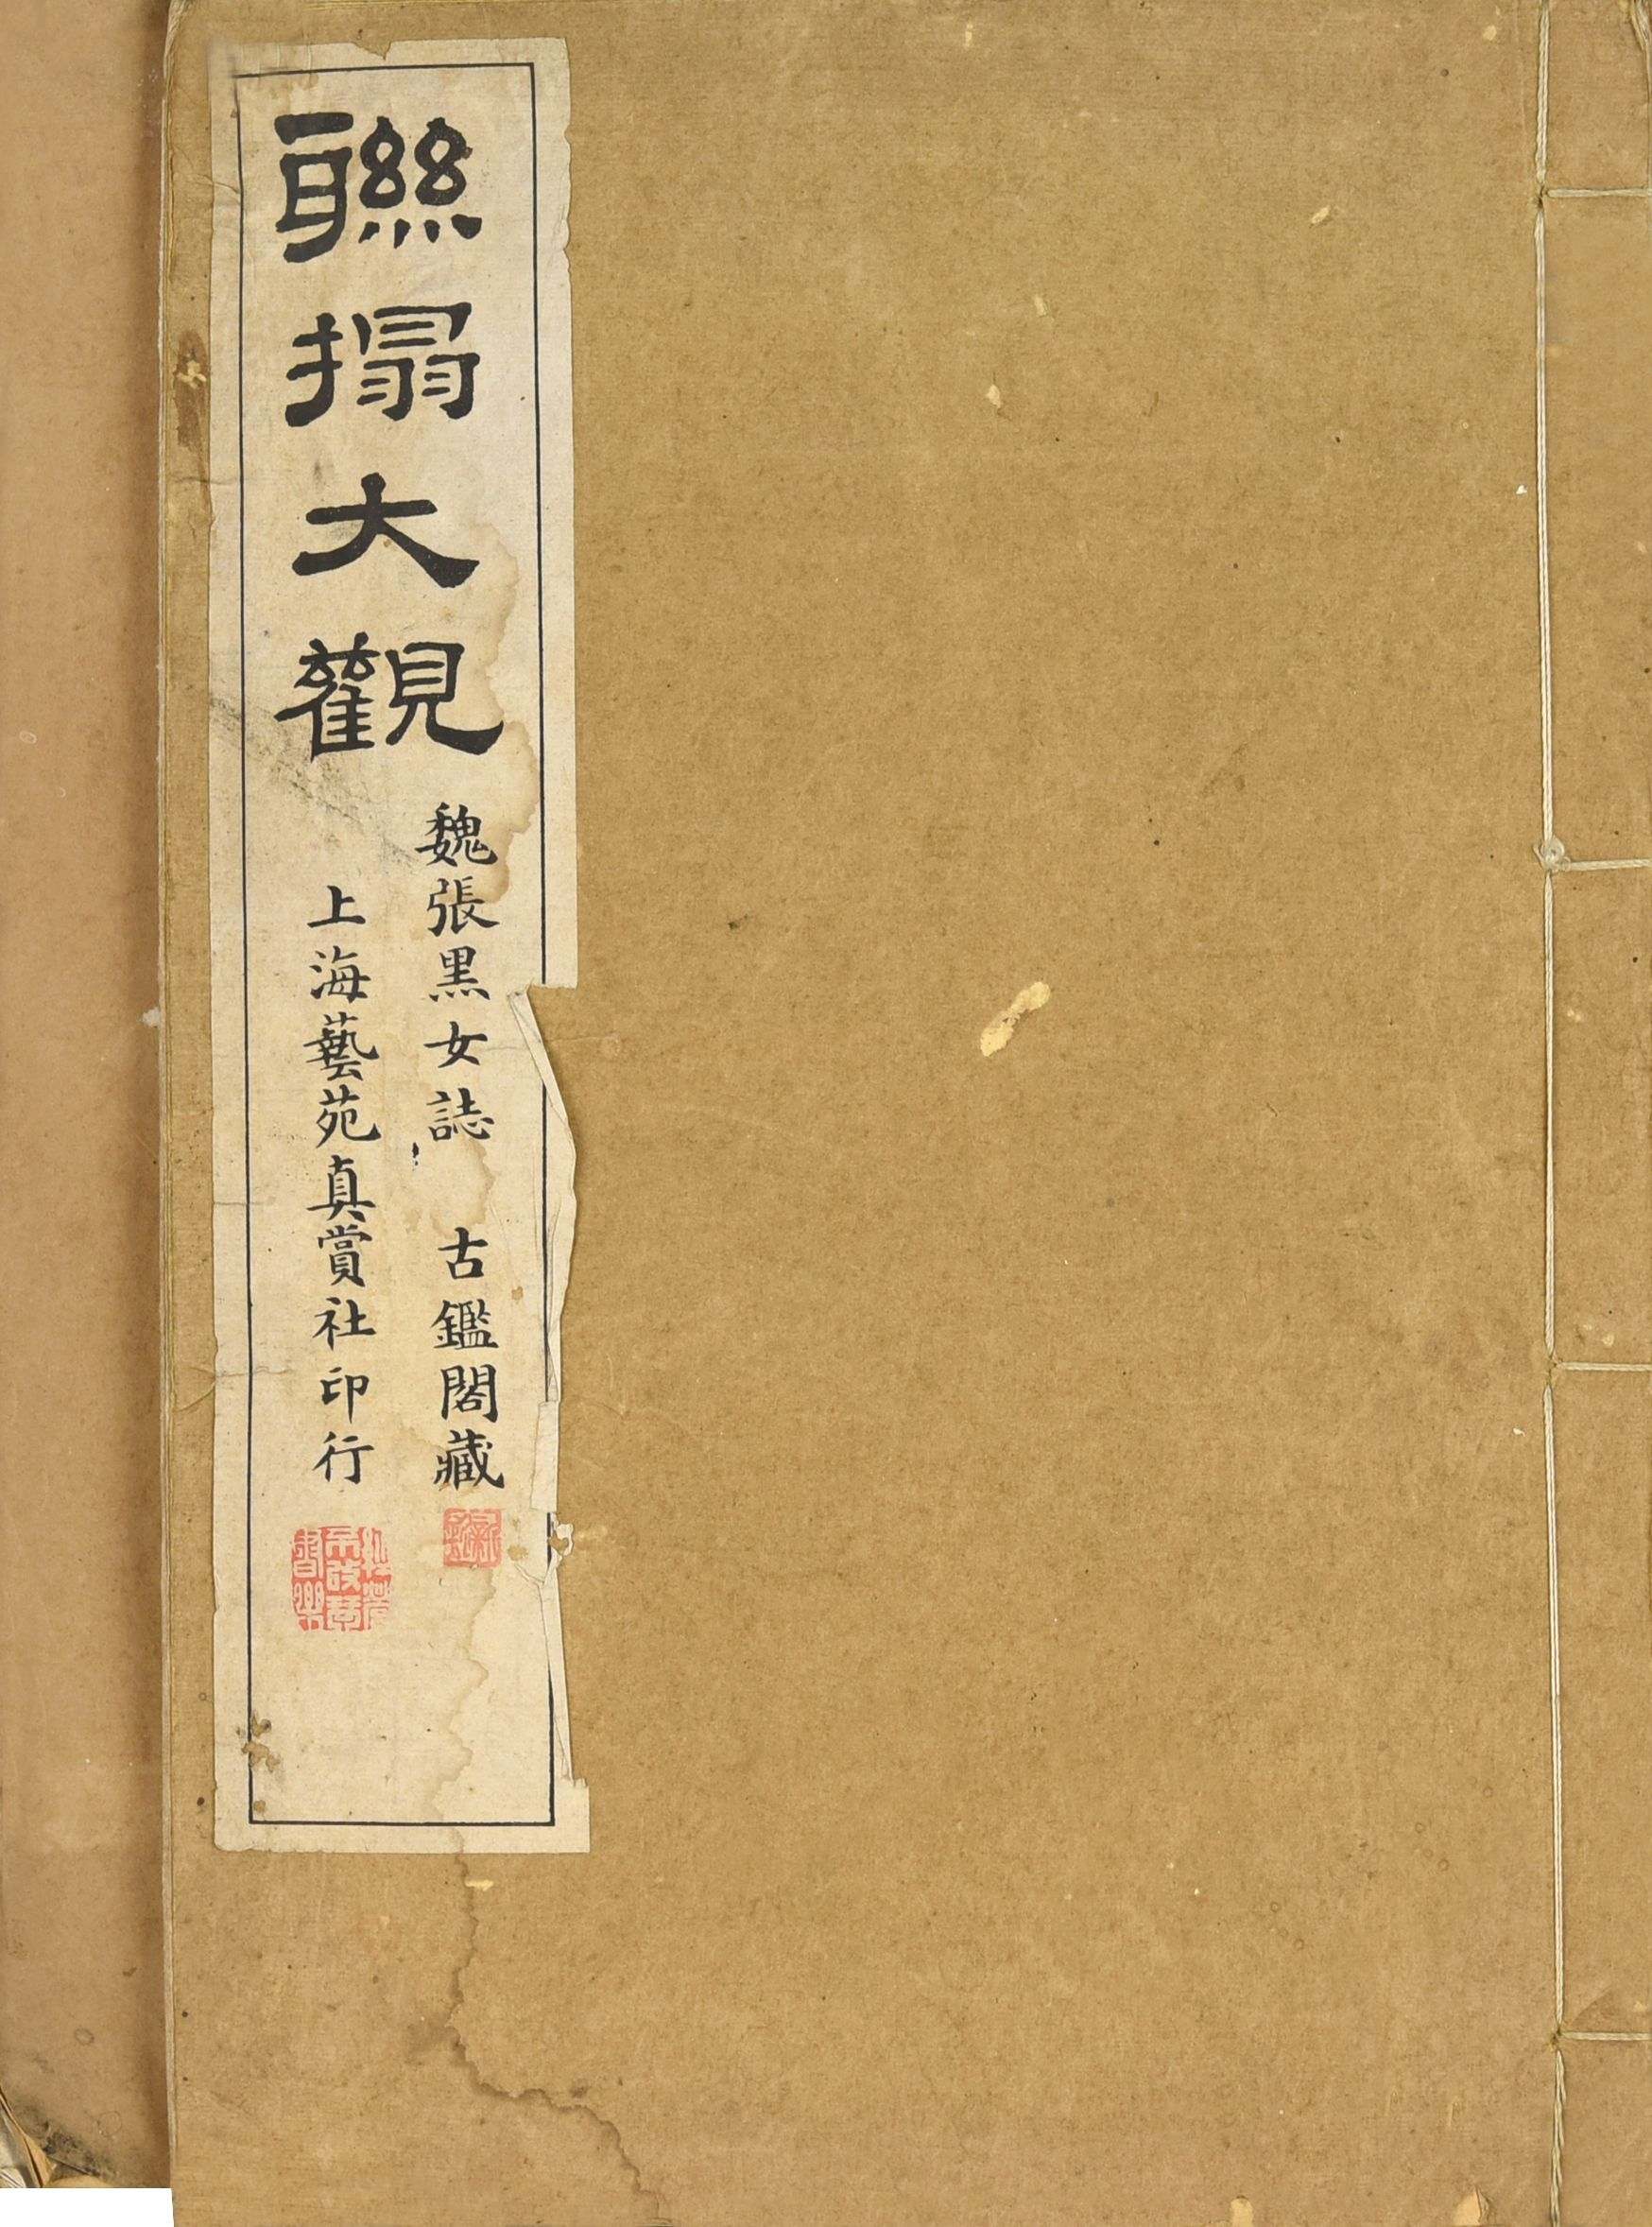 聯搨大觀
魏張黑女誌 古鑑閣藏
上海藝苑真賞社印行